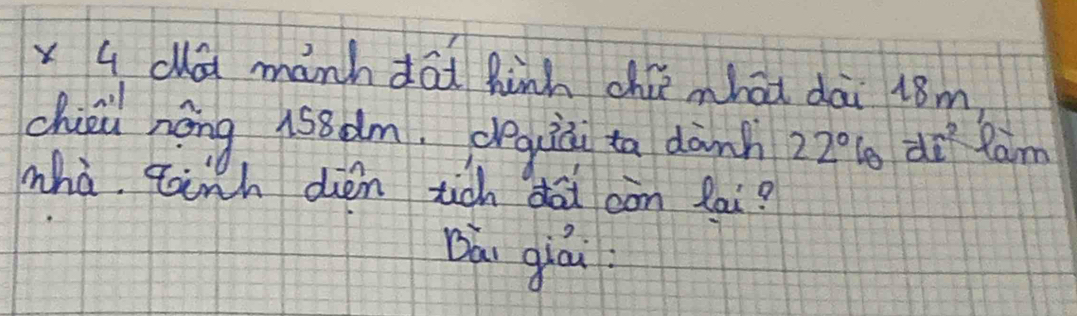 x 4 Một mảnh đất hình chữ nhật dài 18m,
chiều rộng 158dm. Người ta dành 22% để làm
nhà. Tính diện tích đất còn lại?
Bài giải: